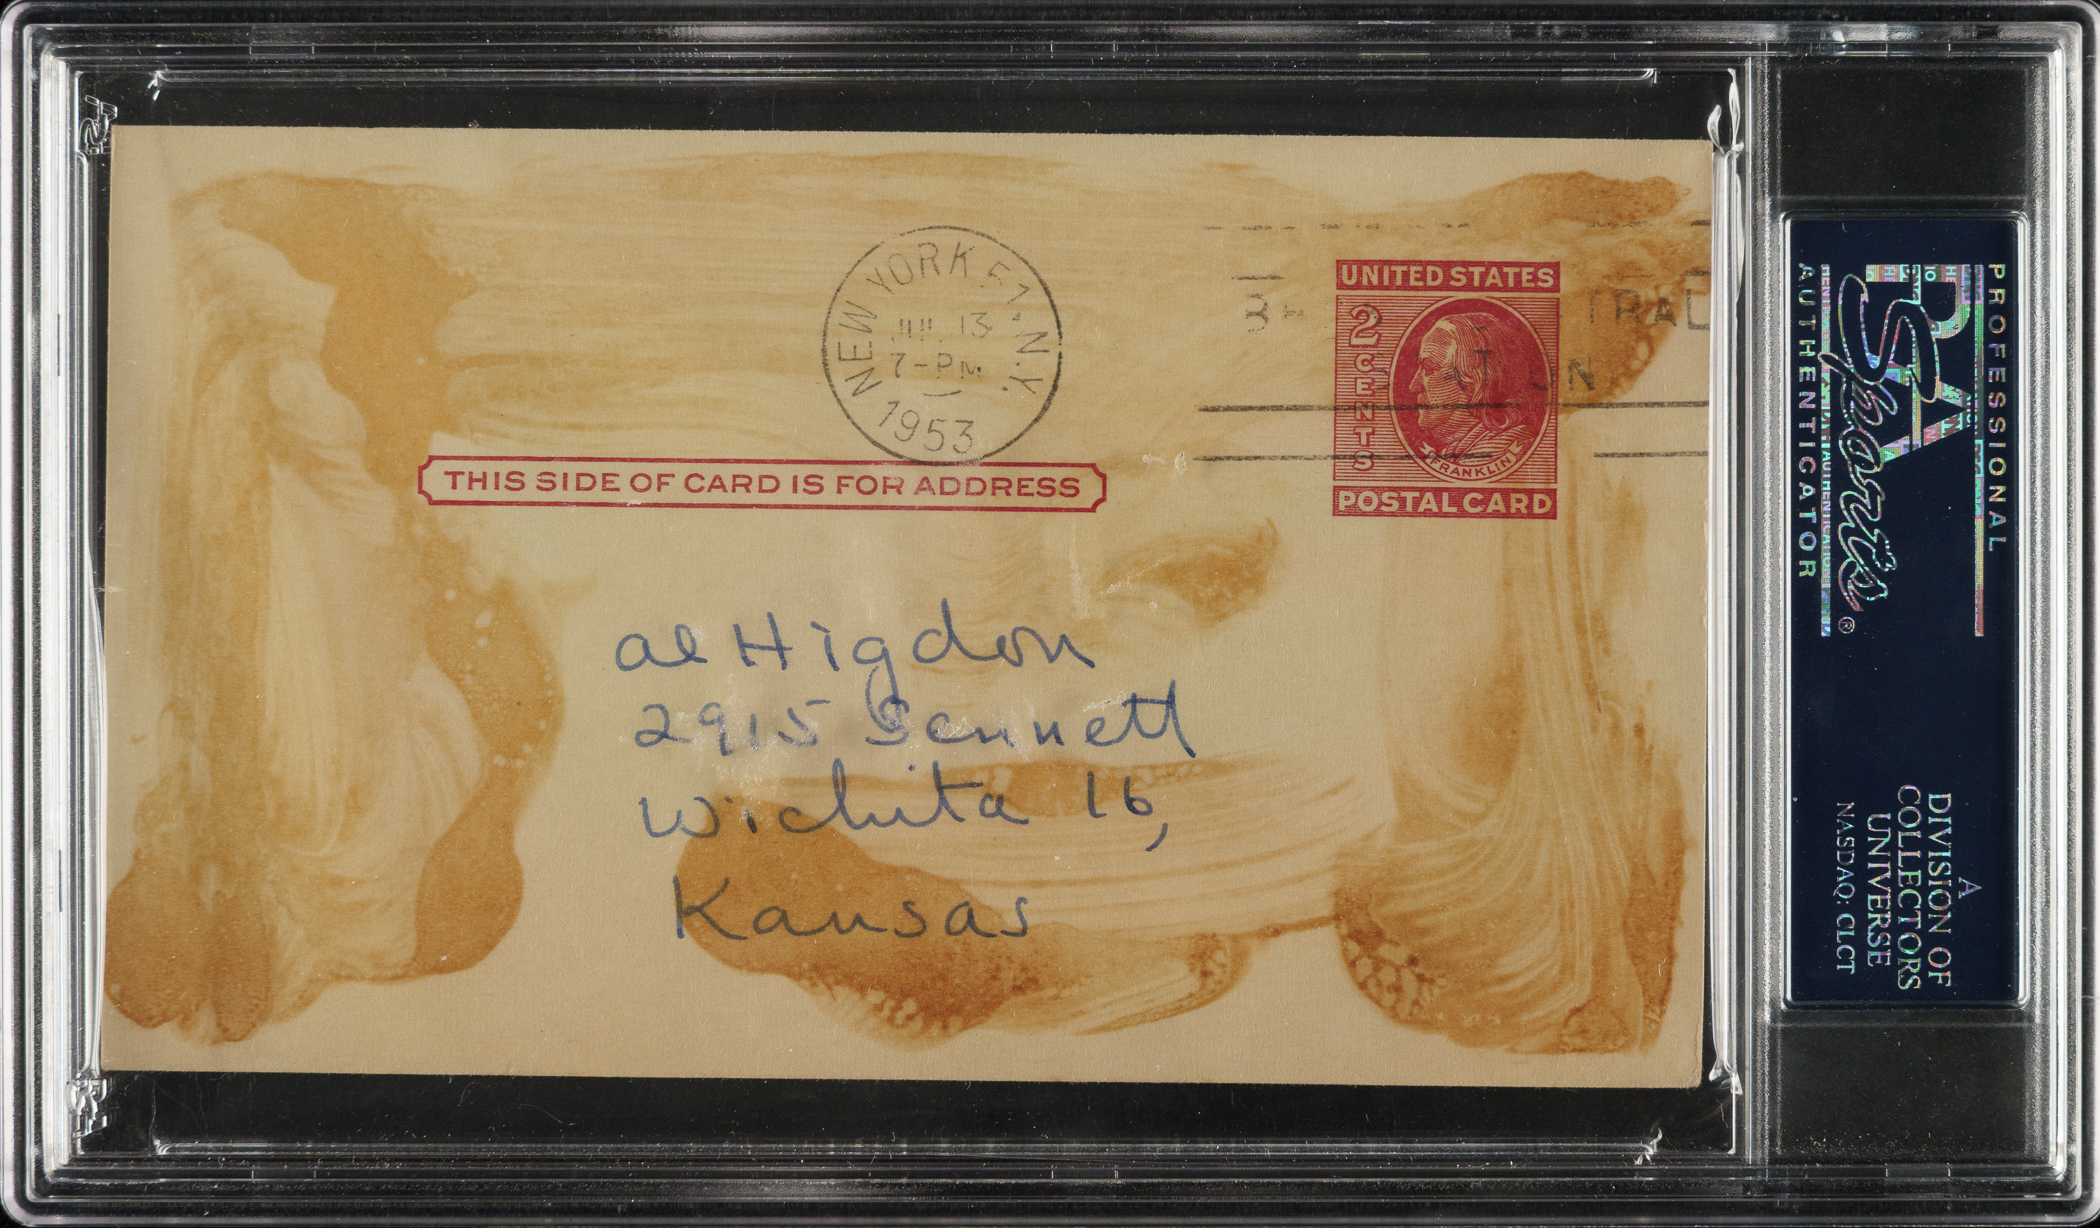 NEW YORK 51 N.Y.
13
7-PM
1953
UNITED STATES
2 CENTS
FRANKLIN
POSTAL CARD
THIS SIDE OF CARD IS FOR ADDRESS
al Higdon
2915 Bennett
Wichita 16,
Kansas
PSA
Sports®
PROFESSIONAL
AUTHENTICATOR
A
DIVISION OF
COLLECTORS
UNIVERSE
NASDAQ: CLCT